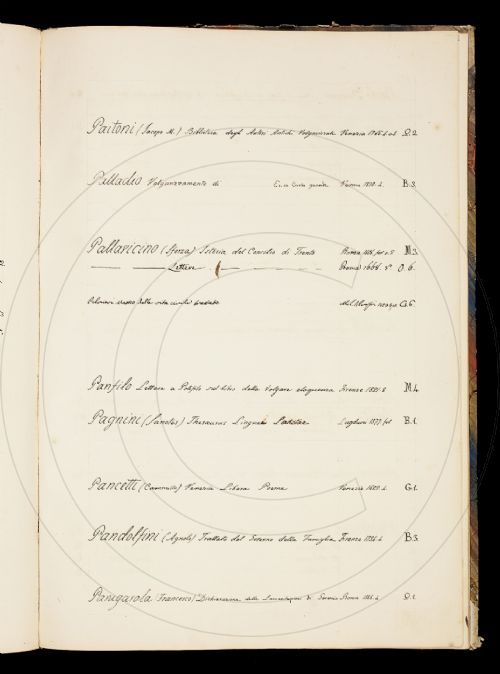 Paitoni (Jacopo M.) Biblioteca degli Autori Antichi Volgarizzati Venezia D.2
Palladio Volgarizzamento di Verona B.3.
Pallavicino (Sforza) Istoria del Concilio di Trento Roma M.3
Lettere Roma 1668. O.6.
della vita civile G.6.
Panfilo Lettere a Polifilo sul libro della Volgare eloquenza Firenze M.4
Pagnini (Santes) Thesaurus Linguae Sanctae Lugduni 1577 fol B.1.
Pancetti (Cammillo) Venezia Libera Poema Venezia G.1.
Pandolfini (Agnolo) Trattato del Governo della Famiglia Firenze 1734.4 B.3.
Panigarola (Francesco) Dichiarazione delle Lamentazioni di Geremia Roma